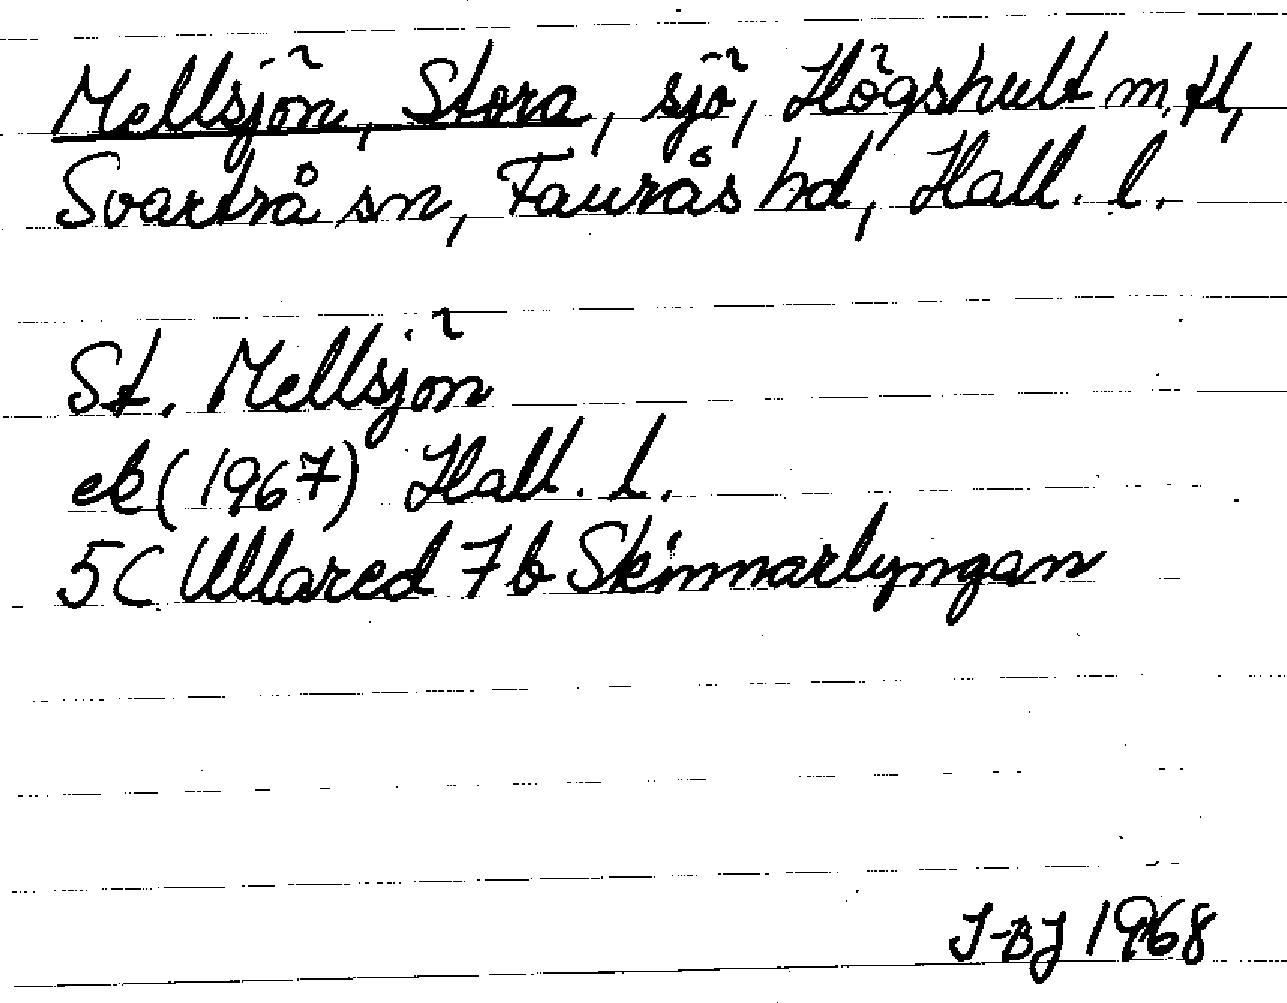 Mellsjön, Stora, sjö, Högshult m. fl,
Svartrå sn, Faurås hd, Hall. l.
St. Mellsjön
ek (1967) Hall. L.
5C Ullared 7b Skinnarlyngen
J-BJ 1968